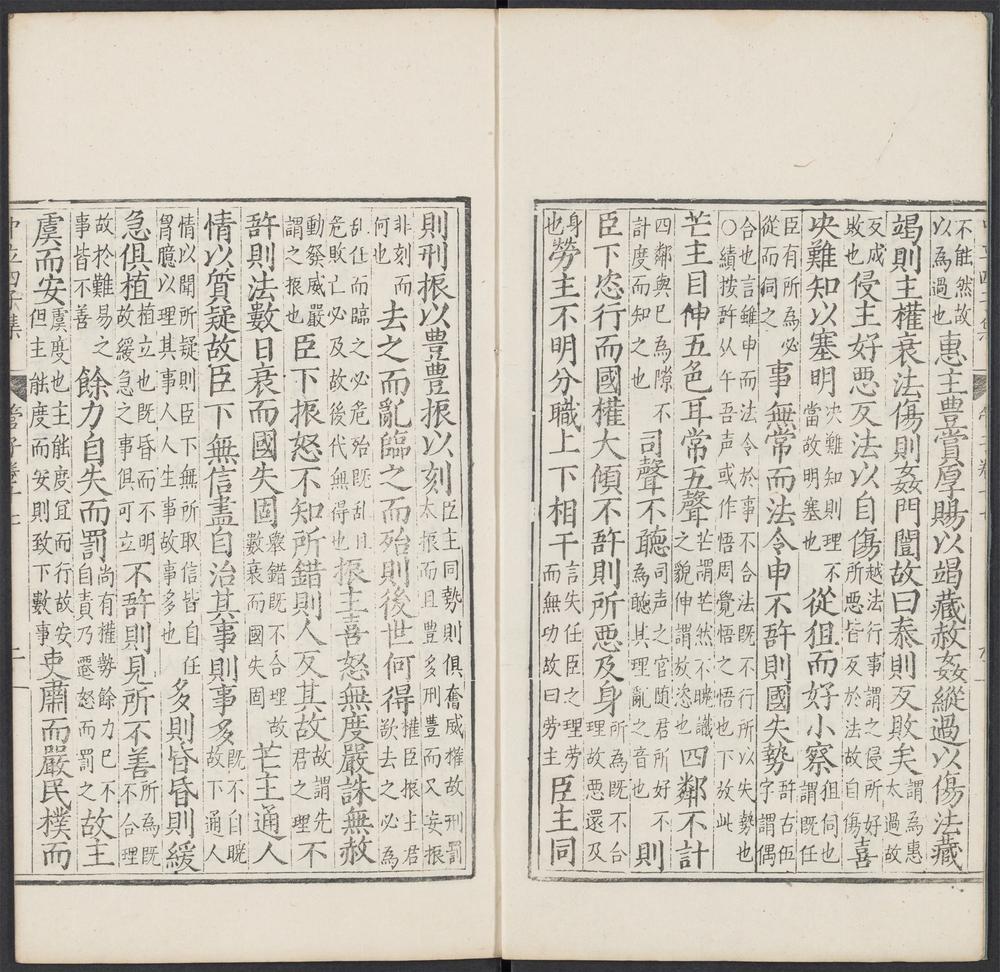 不能然故以為過也惠主豊賞厚賜以竭藏赦姦縱過以傷法藏
竭則主權衰法傷則姦門闓故曰泰則反敗矣謂為惠太過故
反成敗也侵主好惡反法以自傷越法行事謂之侵所好所惡皆反於法故自傷喜
决難知以塞明决難知則理不當故明塞也從狙而好小察狙伺也謂任
臣有所為必從而伺之事無常而法令申不許則國失勢許古伍字謂偶
合也言雖申而法令於事不合法既不行所以失勢也○續按許从午吾声或作悟周覺悟之悟也下放此
芒主目伸五色耳常五聲芒謂芒然不曉識之貌伸謂放恣也四鄰不計
四鄰與已為隙不計度而知之也司聲不聽司聲之官随君所好不為聽其理亂之音也則
臣下恣行而國權大傾不許則所惡及身所為既不合理故惡還及
身也勞主不明分職上下相干言失任臣之理勞而無功故曰勞主臣主同
則刑振以豊豊振以刻臣主同勢則俱奮威權故刑罰太振而且豊多刑豊而又妄振
非刻而何也去之而亂臨之而殆則後世何得權臣振主君欲去之必為
乱任而臨之必危殆既乱且危敗亡必及故後代無得也振主喜怒無度嚴誅無赦
動發威嚴謂之振也臣下振怒不知所錯則人反其故故謂先君之理不
許則法數日衰而國失固舉錯既不合理故數衰而國失固芒主通人
情以質疑故臣下無信盡自治其事則事多既不自晥故下通人
情以聞所疑則臣下無所取信皆自任胷臆以理其事人人生事故事多也多則昏昏則緩
急俱植植立也既昏而不明故緩急之事俱可立不許則見所不善所為既不合理
故於難易之事皆不善餘力自失而罰尚有權勢餘力巳不自責乃遷怒而罰之故主
虞而安虞度也主能度宜而行故安但主能度而安則致下數事吏肅而嚴民樸而